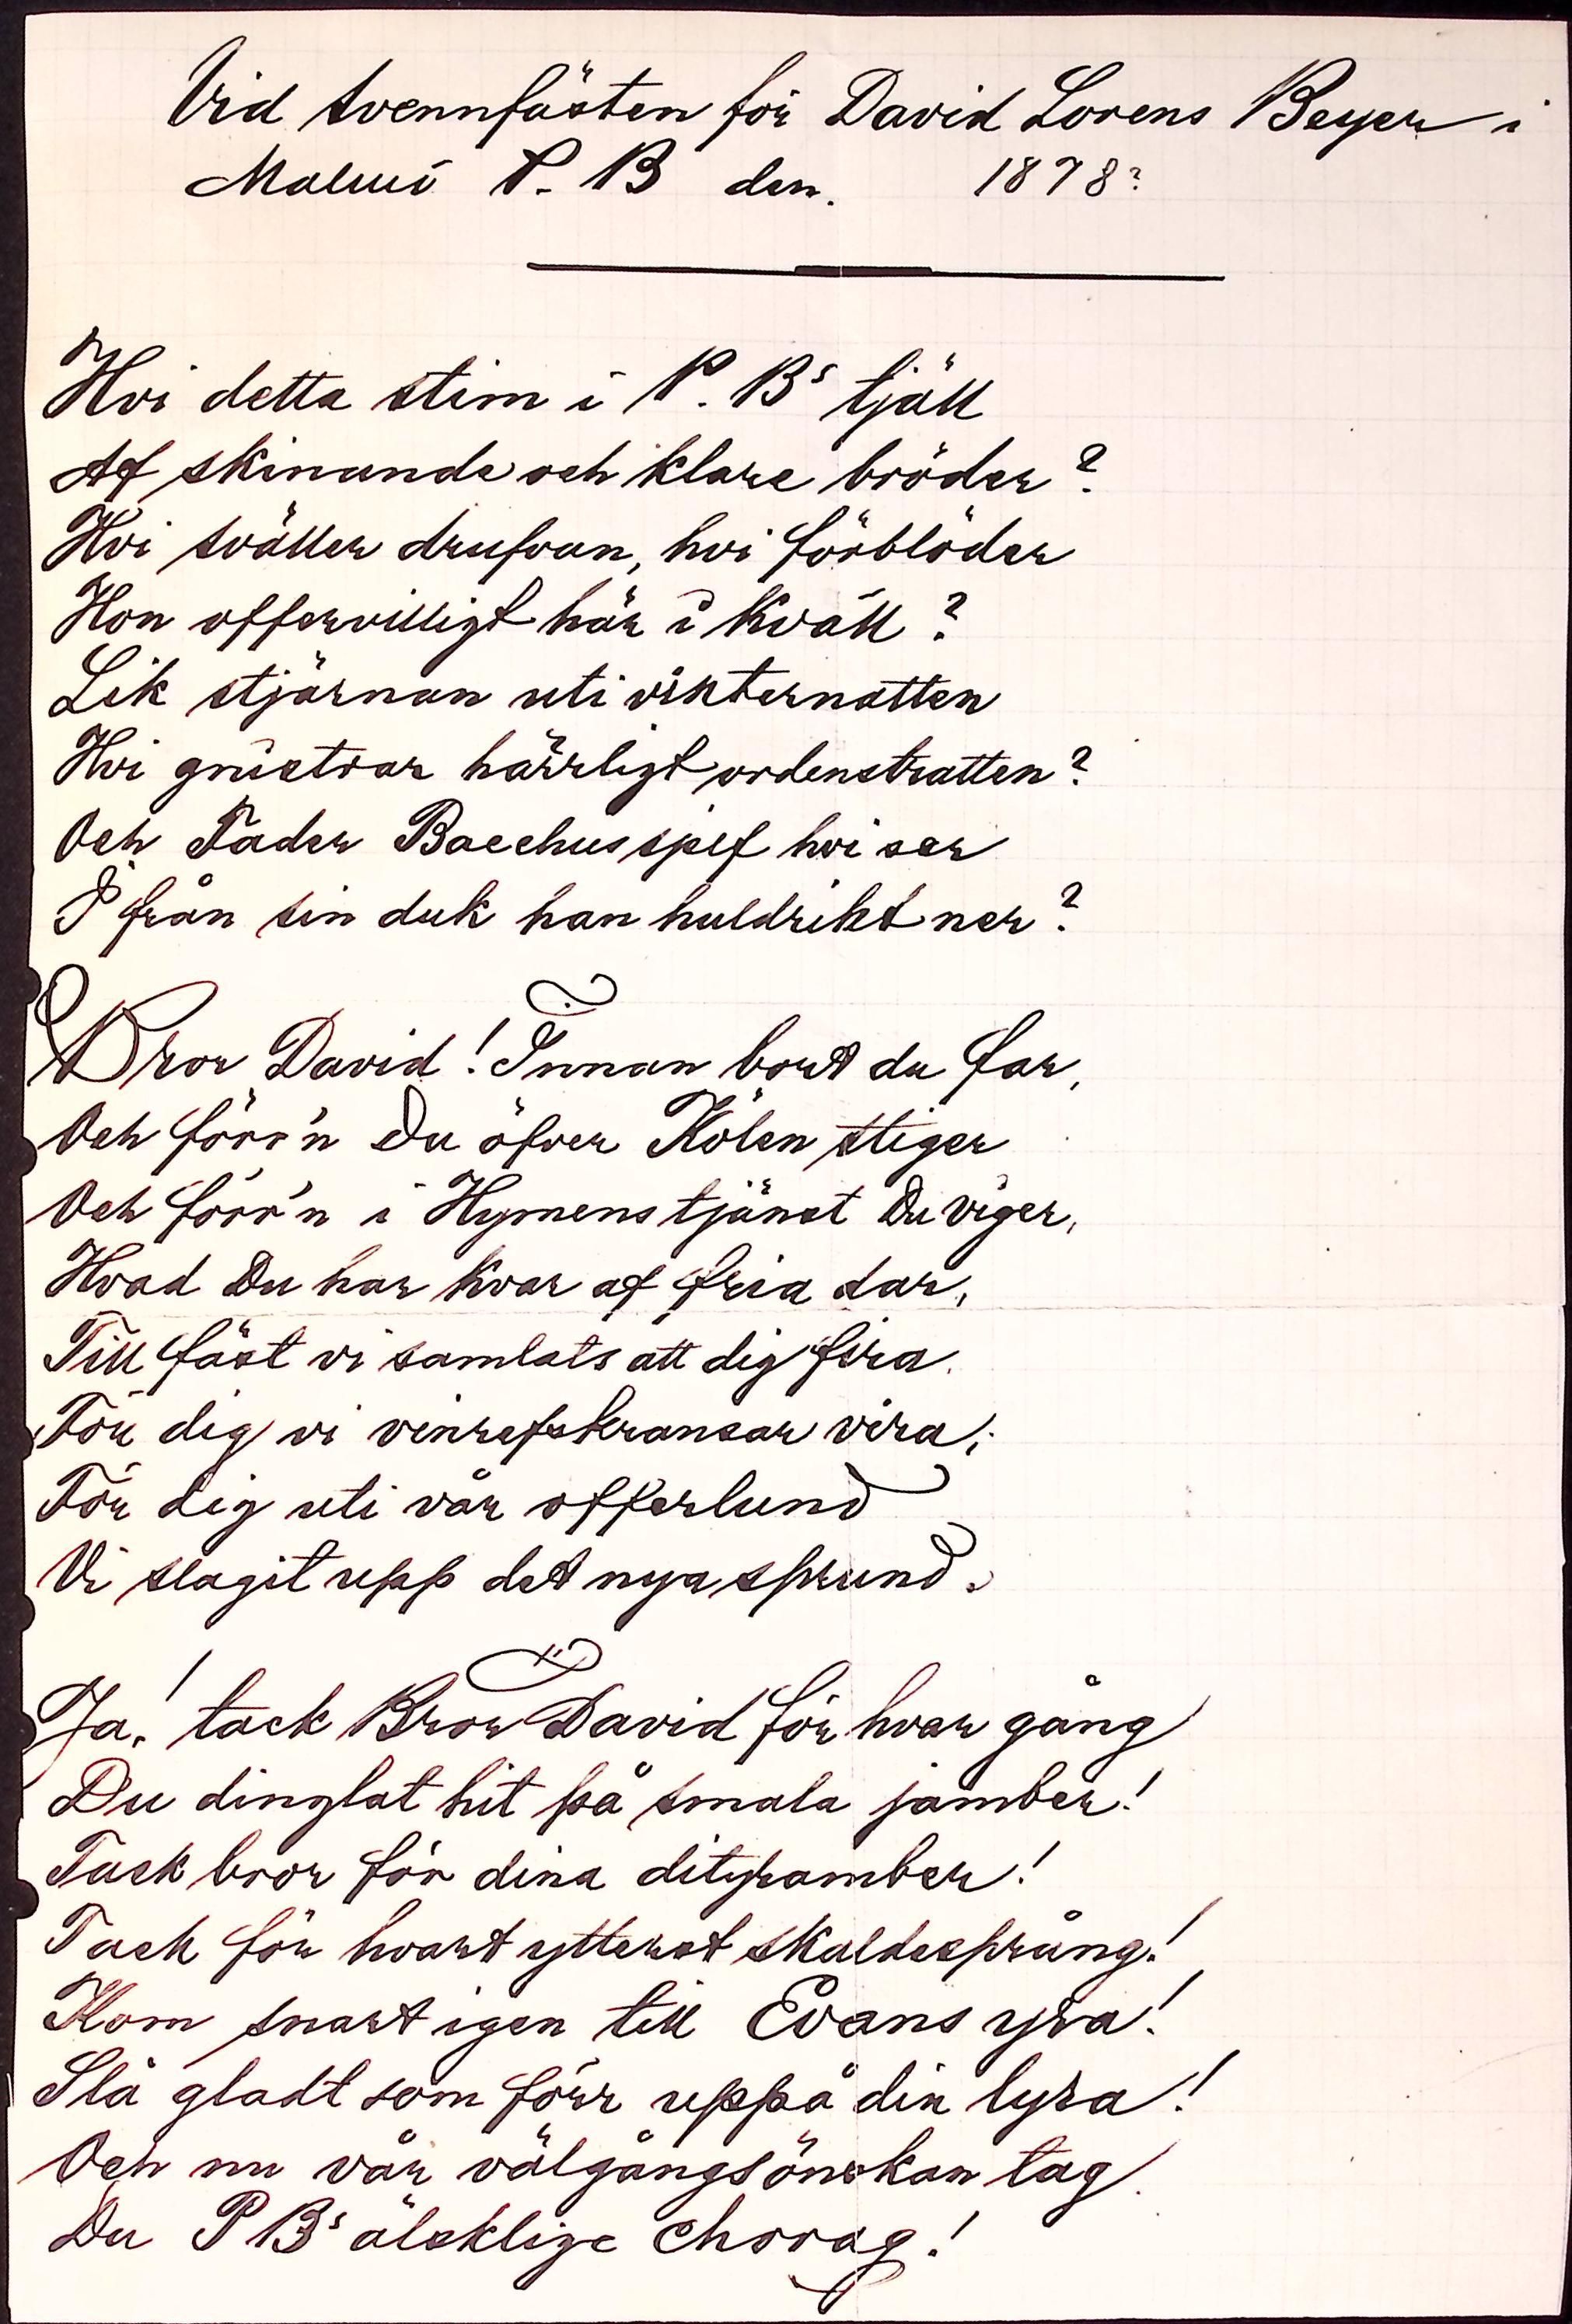 Vid svennfästen för David Lorens Beyer i
Malmö P. B den. 1878?
Hvi detta stim i P. Bs tjäll
Af skinande och klare bröder?
Hvi sväller drufvan, hvi förblöder
Hon offervilligt här i kväll?
Lik stjärnan uti vinternatten
Hvi gnistrar härrligt ordenstratten?
Och Fader Bacchus sjelf hvi ser
I från sin duk han huldrikt ner?
Bror David! Innan bort du far,
Och förr'n Du öfver Kölen stiger
Och förr'n i Hymens tjänst Du viger,
Hvad Du har kvar af fria dar,
Till fäst vi samlats att dig fira.
För dig vi vinrefskransar vira;
För dig uti vår offerlund
Vi slagit upp det nya sprund.
Ja! tack Bror David för hvar gång
Du dinglat hit på smala jamber!
Tack bror för dina dityramber!
Tack för hvart ytterst skaldesprång!
Kom snart igen till Evans yra!
Slå gladt som förr uppå din lyra!
Och nu vår välgångsönskan tag
Du P Bs älsklige chorag!